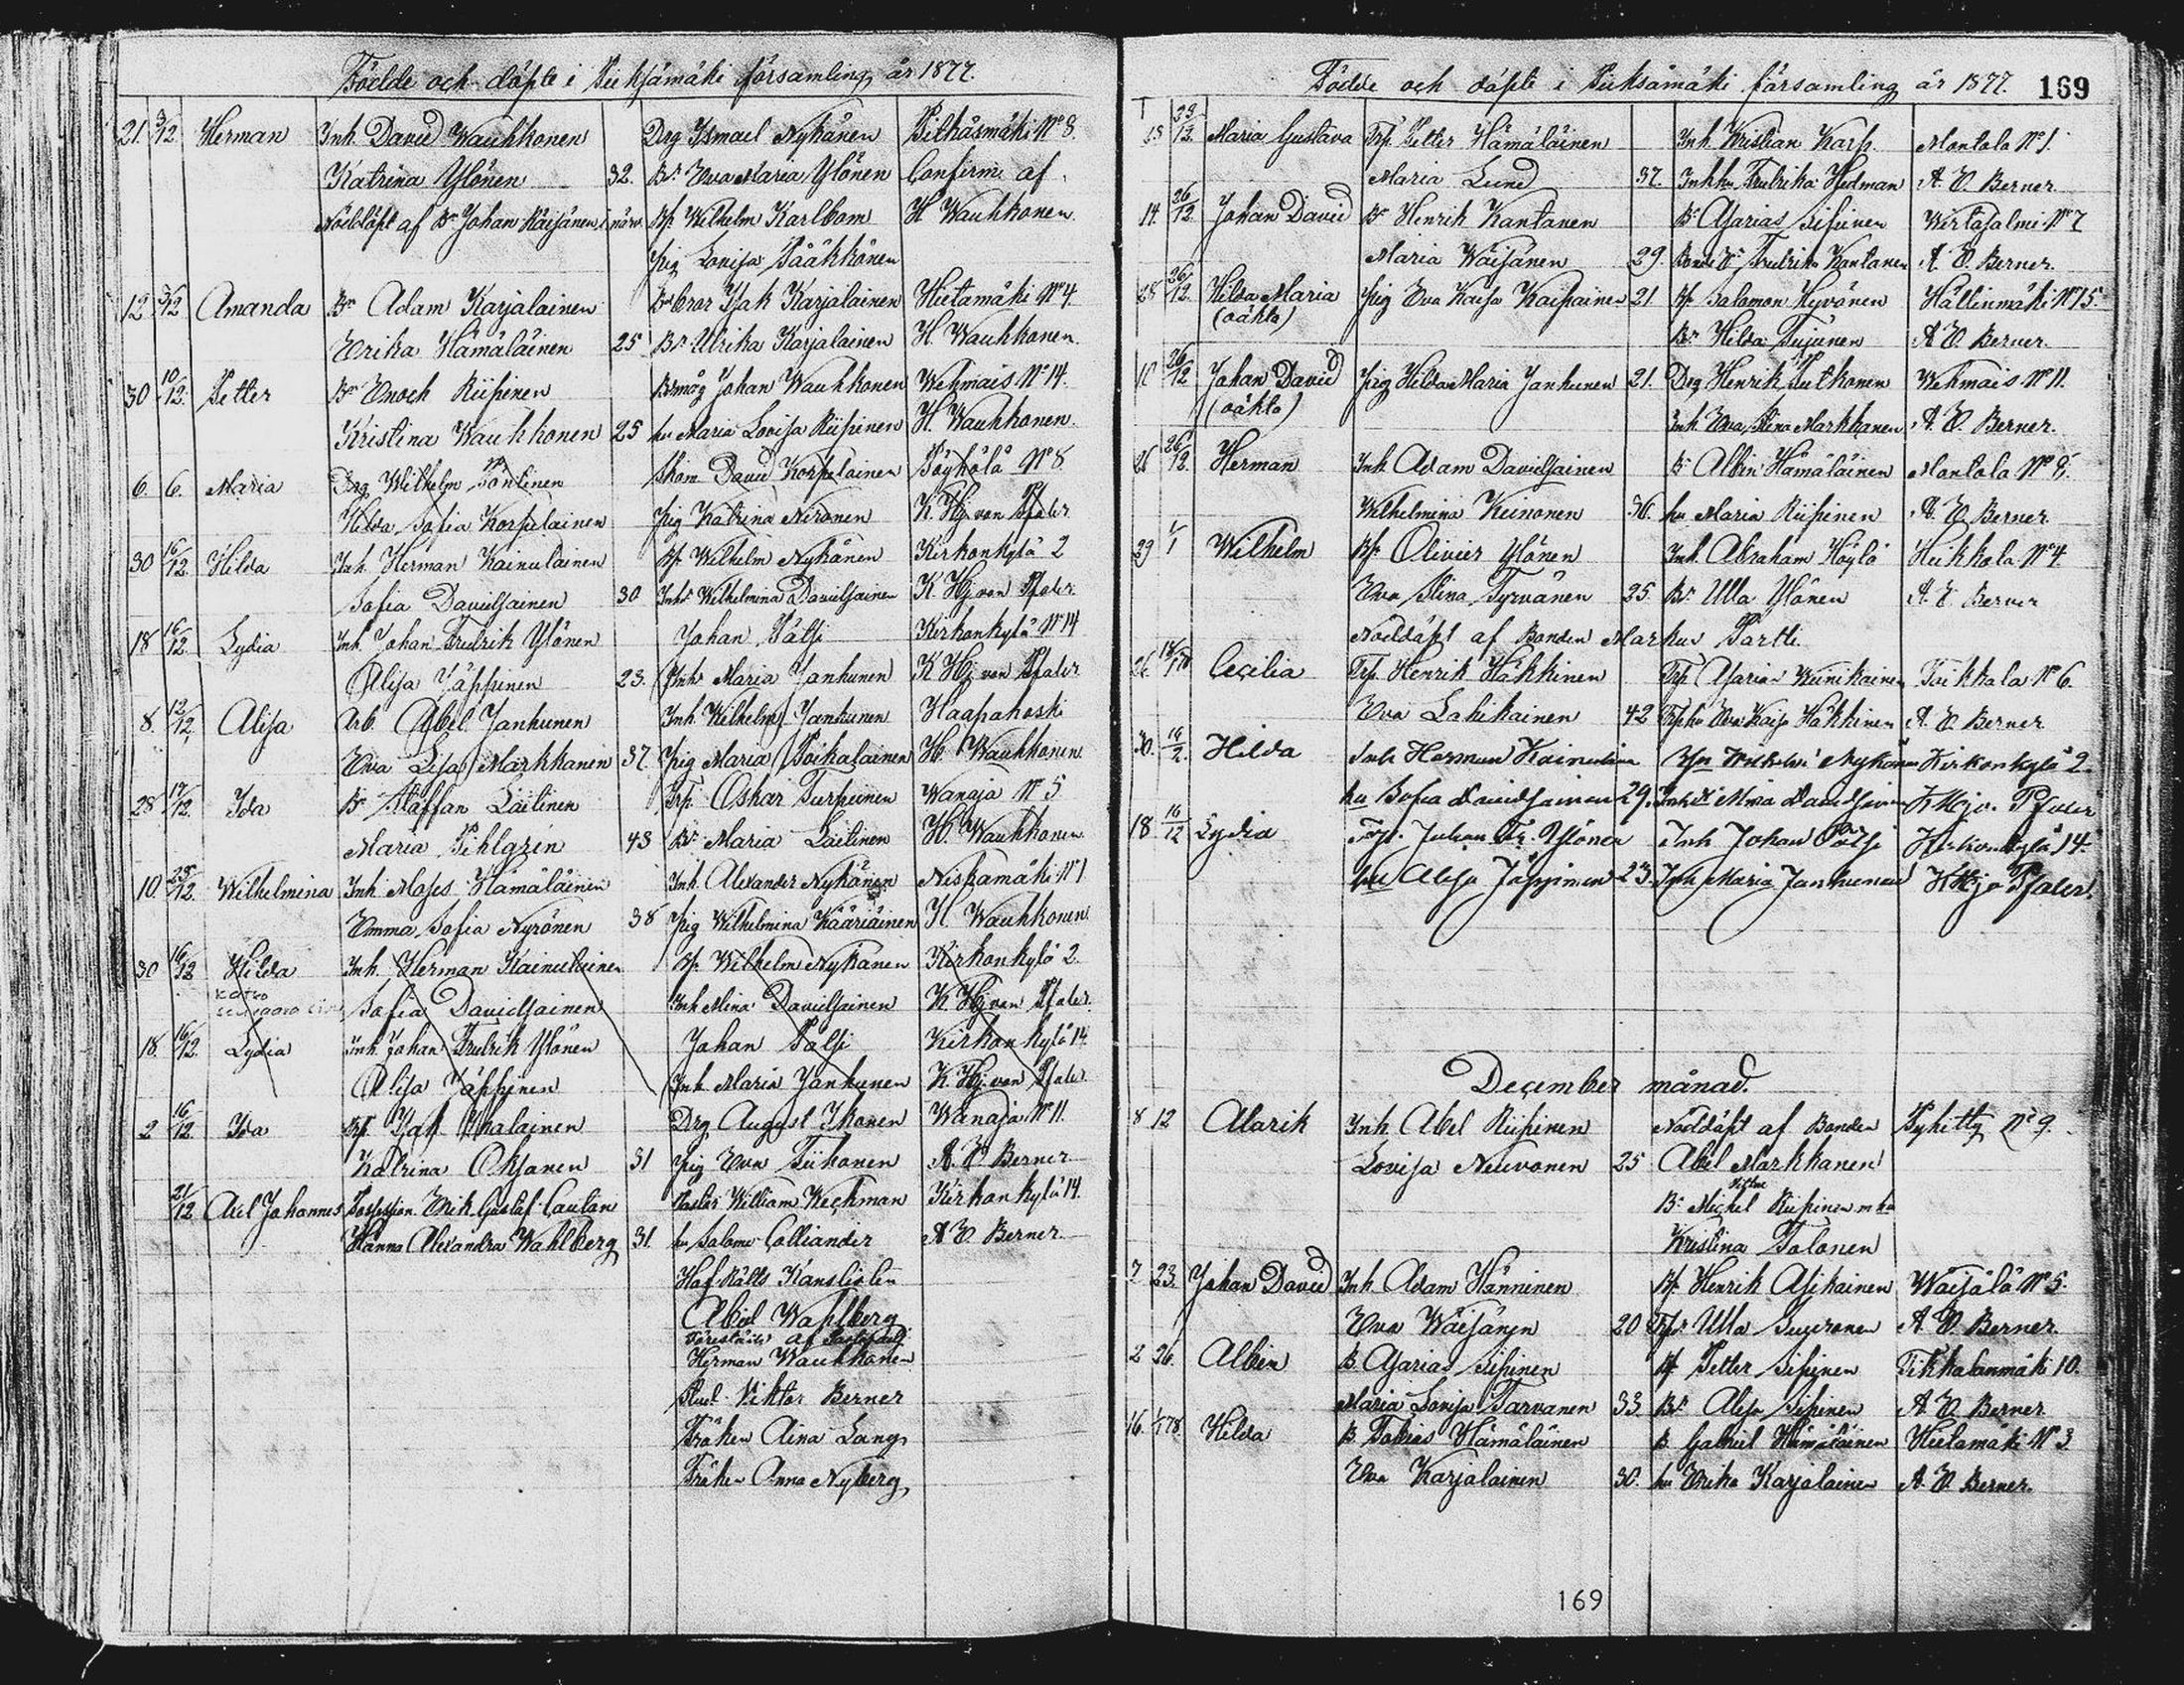 Födde och döpte i Pieksämäki församling år 1877.
21. 3/12 Herman Inh. David Wauhkonen Drg Ismael Nykänen Pitkäsmäki No 8.
Katrina Ylönen 32. Br Eva Maria Ylönen Confirm. af
Nöddöpt af Br Johan Räisänen, i närv. Bp. Wilhelm Karlbom H Wauhkonen.
Pig Lovisa Pääkkönen
12 3/12 Amanda Br Adam Karjalainen Brbror Isak Karjalainen Hietamäki No 4.
Erika Hämäläinen 25 Br Ulrika Karjalainen H. Wauhkonen.
30 10/12. Petter Br Enoch Riipinen Brmåg Johan Wauhkonen Wehmais No 14.
Kristina Wauhkonen 25 hu Maria Lovisa Riipinen H. Wauhkonen.
6. 6. Maria Drg Wilhelm Pöntinen Skom. David Korpelainen Pöyhölä No 8
Hilda Sofia Korpelainen Pig Katrina Nironen K. Hj. von Pfaler
30 16/12. Hilda Inh. Herman Kainulainen Bp. Wilhelm Nykänen Kirkonkylä 2
Sofia Davidsainen 30 Inhr Wilhelmina Davidsainen K. Hj. von Pfaler.
18 16/12. Lydia Inh. Johan Fredrik Ylönen Johan Pätsi Kirkonkylä No 14
Alisa Jäppinen 23. Inhr Maria Janhunen K Hj. von Pfaler
8. 12/12, Alisa Arb. Abel Janhunen Inh. Wilhelm Janhunen Haapakoski
Eva Lisa Markkanen 37. Pig Maria Poikalainen H. Wauhkonen
28 17/12. Ida Br Staffan Laitinen Trp. Oskar Turpeinen Wanaja No 5
Maria Pihlgrén 43 Br Maria Laitinen H. Wauhkonen
10. 28/12. Wilhelmina Inh. Moses Hämäläinen Inh. Alexander Nykänen Niskamäki No 1
Emma Sofia Nyrönen 38 Pig Wilhelmina Kääriäinen H. Wauhkonen.
30 16/12 Hilda Inh. Herman Kainulainen Bp. Wilhelm Nykänen Kirkonkylä 2.
katso seuraava sivu Sofia Davidsainen Inh Mina Davidsainen K Hj. von Pfaler.
18. 16/12. Lydia Inh. Johan Fredrik Ylönen Johan Pätsi Kirkonkylä 14.
Alisa Jäppinen Inh Maria Janhunen K. Hj. von Pfaler.
2 16/12. Ida Bp. Isak Ihalainen Drg August Ikonen Wanaja No 11.
Katrina Oksanen 31 Pig Eva Tiihonen A. E. Berner
21/12 Axel Johannes Possession. Erik Gustaf Cautón Pastor William Weckman Kirkonkylä 14.
Hanna Alexandra Wahlberg 31. hu Salome Calliander A E Berner.
Hof Rätts Kanslisten
Abiel Wahlberg
Föreståndr af
Herman Wauhkonen
Stud. Viktor Berner
Fröken Aina Lang
Fröken Anna Nyberg
Födde och döpte i Pieksämäki församling år 1877. 169
23/12. Maria Gustava Trp. Petter Hämäläinen Inh. Kristian Karp. Montola No 1.
Maria Lund 37. Inhhu Fredrika Hedman A. E. Berner.
14. 26/12. Johan David Br Henrik Kantanen Br Asarias Sipinen Wirtasalmi No 7
Maria Wäisänen 29. Fredrika Kantanen A. E. Berner.
28 26/12. Hilda Maria Pig Eva Kaisa Kaipainen 21 Bp. Salomon Hyvönen Hällinmäki No 15.
(oäkta) Br Hilda Tujunen A E Berner.
10 26/12 Johan David Pig Hilda Maria Janhunen 21. Drg Henrik Putkonen Wehmais No 11.
(oäkta) Inh. Eva Stina Markkanen A. E. Berner.
26 26/12. Herman Inh Adam Davidsainen Br Albin Hämäläinen Montola No 8.
Wilhelmina Keinonen 36. hu Maria Riipinen A. E. Berner.
29 1/1 Wilhelm Bp. Olivier Ylönen Inh. Abraham Höylö Heikkola No 4.
Eva Stina Tyrvänen 25. Br Ulla Ylönen A. E Berner
Nöddöpt af Bonden Markus Partti.
26 Cecilia Trp. Henrik Häkkinen Trp. Asarias Kunikainen Toikkala No 6.
Eva Lahikainen 42 Trphu Eva Kaisa Häkkinen A. E Berner
30. 16/12. Hilda Inh Herman Kainulainen Wilhelm Nykänen Kirkonkylä 2.
hu Sofia Davidsainen 29. Inh Mina Davidsainen K Hj v. Pfaler
18 16/12 Lydia Johan Fr. Ylönen Inh Johan Pätsi Kirkonkylä 14.
hu Alisa Jäppinen 23. Inh Maria Janhunen K Hj v Pfaler.
December månad.
8 12 Alarik Inh. Abel Riipinen Nöddöpt af Bonden Pyhitty No 9.
Lovisa Neuvonen 25 Abel Markkanen
Vittne
Br Mickel Riipinen m hu
Kristina Tolonen
7 23. Johan David Inh. Adam Hänninen Bp. Henrik Asikainen Waisälä No 5.
Eva Wäisänen 20 Ulla A. E. Berner.
2 26. Albin B. Asarias Sipinen Bp. Petter Sipinen Tikkalanmäki 10.
Maria Lovisa Tarvanen 33. Br Alisa Sipinen A. E Berner
16. 1/1 78. Hilda B. Tobias Hämäläinen B Gabriel Hämäläinen Hietamäki No 3.
Eva Karjalainen 30. hu Erika Karjalainen A. E. Berner.
169